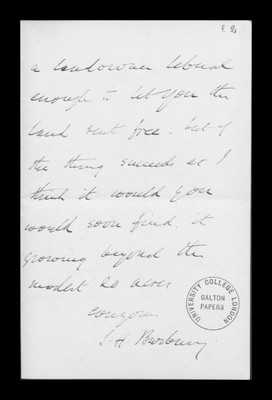 f. 2
a landowner liberal
enough to let you the
land rent free. but if
the thing succeeds as I
think it would you
would soon find it
growing beyond the
modest 20 acres
S. H. Burbury
UNIVERSITY COLLEGE LONDON
GALTON
PAPERS